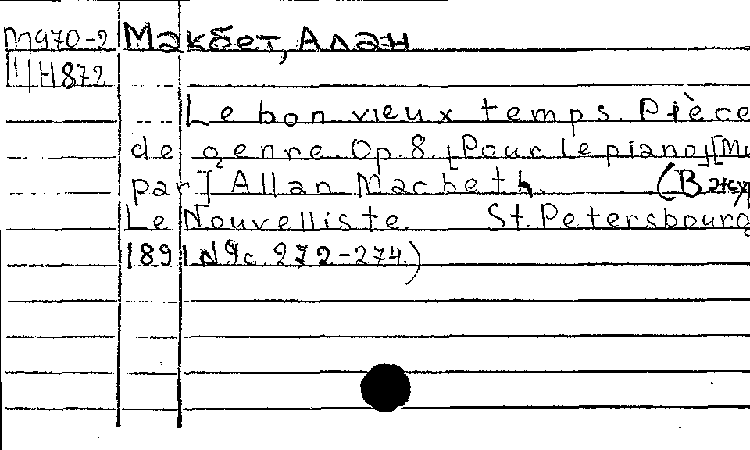 М970-2 Макбет, Алан
Ш/Н872
Le bon vieux temps. Pièce
de genre. Op. 8. [Pour le piano] [Mu
par] Allan Macbeth. (В жур
Le Nouvelliste. St. Petersbourg
1891 N9 c. 272-274.)